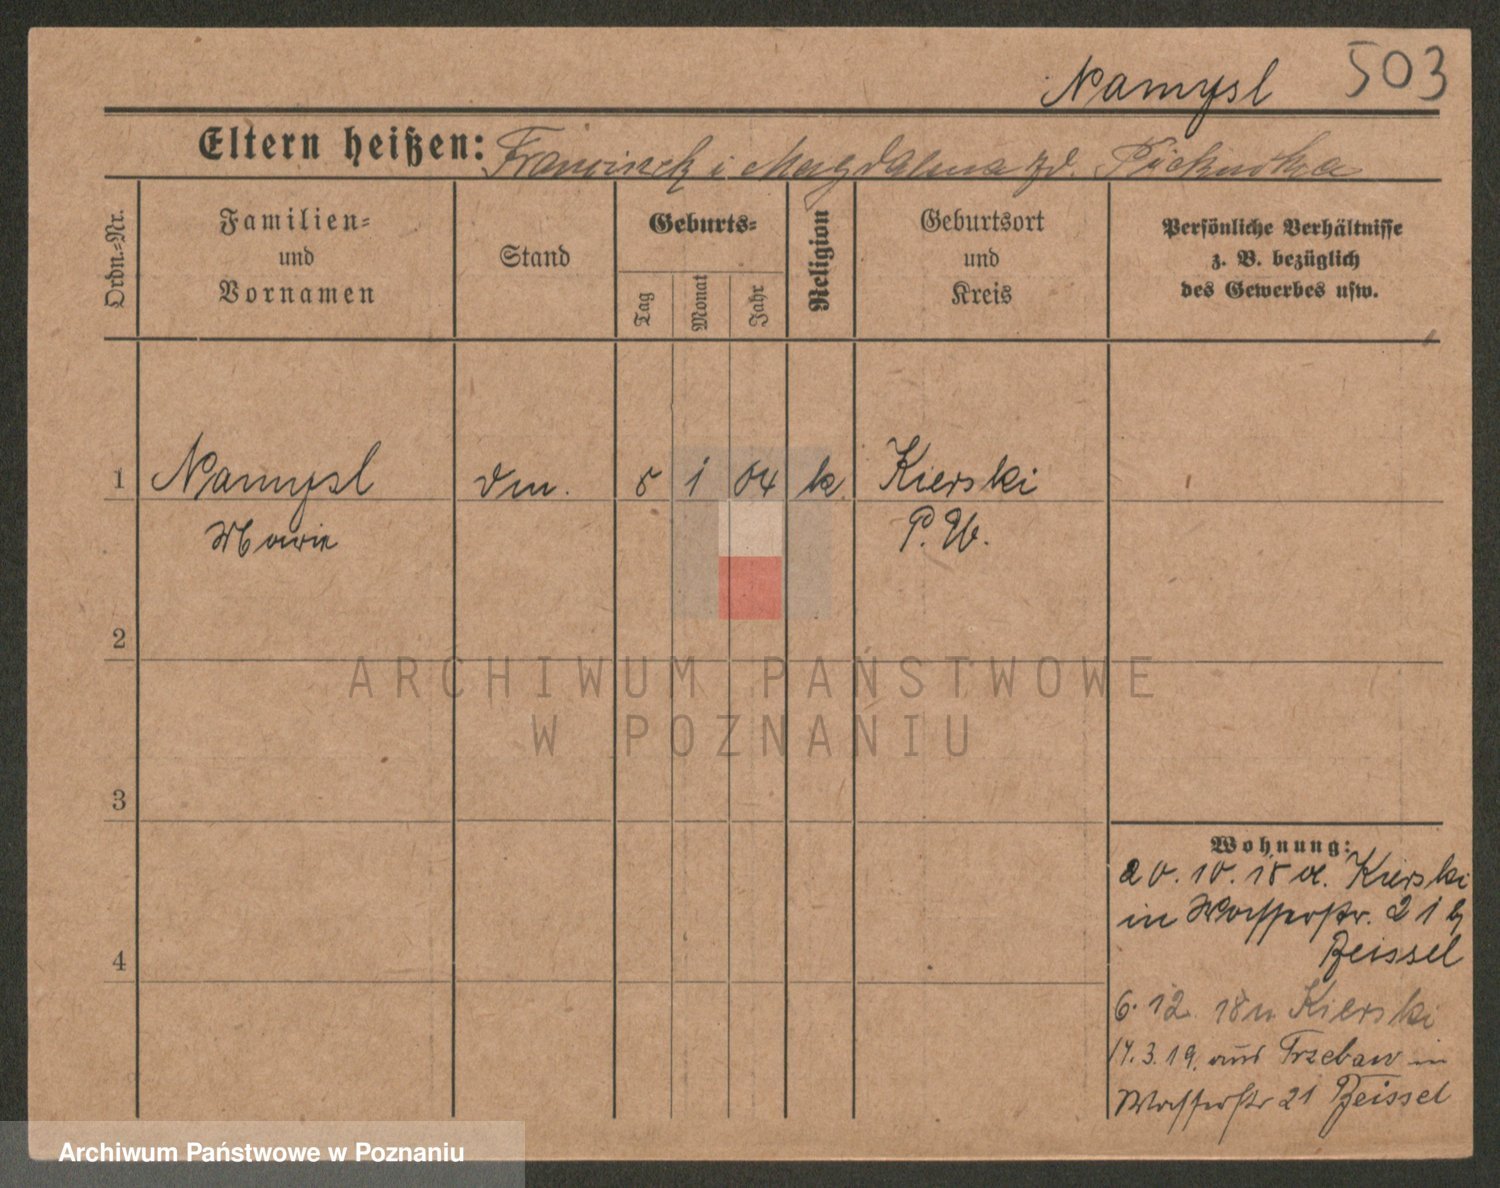 503
Namysl
Eltern heißen: Franciszek i Magdalena zd.
Ordn.=Nr.
Familien=
und
Vornamen
Stand
Geburts=
Tag
Monat
Jahr
Religion
Geburtsort
und
Kreis
Persönliche Verhältnisse
z. B. bezüglich
des Gewerbes usw.
1 Namysl dm. 5 1 04 k. Kierski
Marie P. W.
2
ARCHIWUM PAŃSTWOWE
W POZNANIU
3
4
Wohnung:
20. 10. 18 a. Kierski
in Wasserstr. 21 b
Zeissel
6. 12. 18 n Kierski
14. 3. 19. aus Trzebaw in
Wasserstr 21 Zeissel
Archiwum Państwowe w Poznaniu